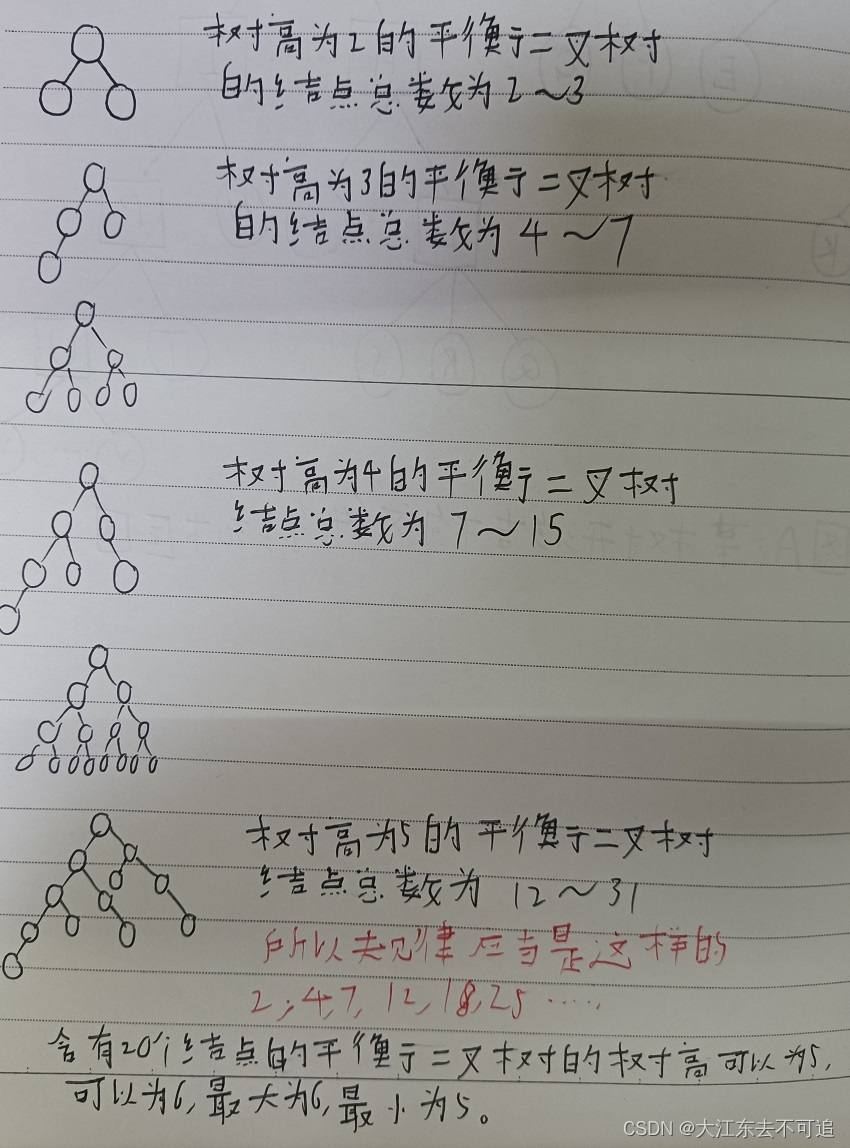 树高为2的平衡二叉树
的结点总数为2~3
树高为3的平衡二叉树
的结点总数为4~7
树高为4的平衡二叉树
结点总数为7~15
树高为5的平衡二叉树
结点总数为 12~31
所以规律应当是这样的
2,4,7,12,18,25……
含有20个结点的平衡二叉树的树高可以为5,
可以为6,最大为6,最小为5。
CSDN @大江东去不可追